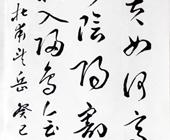 夫如何
陰陽割
入歸鳥會
杜甫望岳癸巳